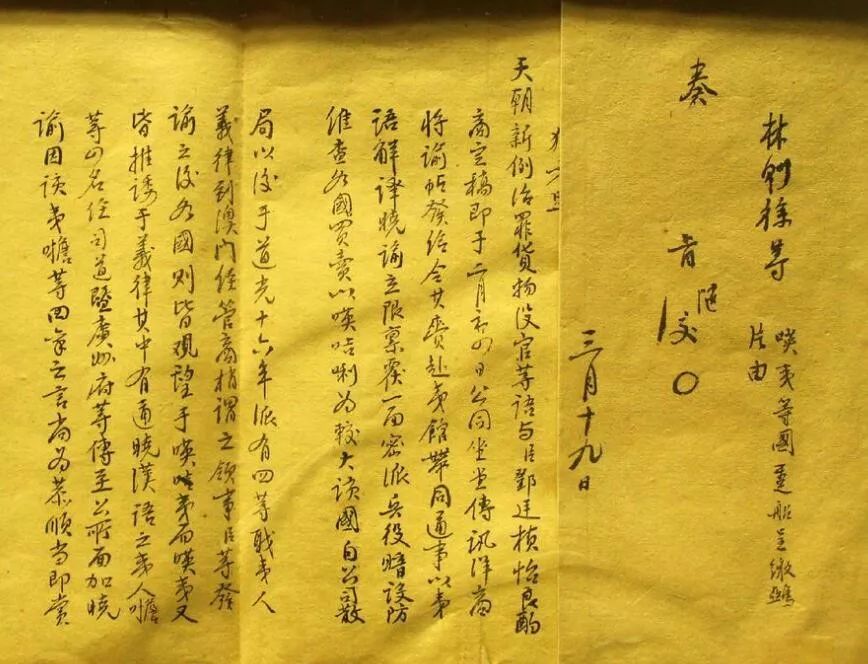 林則徐等
暎夷等國躉船呈繳鴉
片由
奏
旨
隨
三月十九日
天朝新例治罪貨物没官等語与臣鄧廷楨怡良酌
商定稿即于二月初四日公同坐堂傳訊洋商
将諭帖發给令其賫赴夷館帶同通事以夷
語解譯曉諭立限禀覆一面密派兵役暗設防
维查各國買賣以暎咭唎為較大該國自公司散
局以後于道光十六年派有四等職夷人
義律到澳門经管商梢謂之領事臣等發
諭之後各國則皆观望于暎咭夷而暎夷又
皆推諉于義律其中有通曉漢語之夷人噡
等四名经司道暨廣州府等傳至公所面加曉
諭因該夷噡等回禀之言尚為恭順当即賞